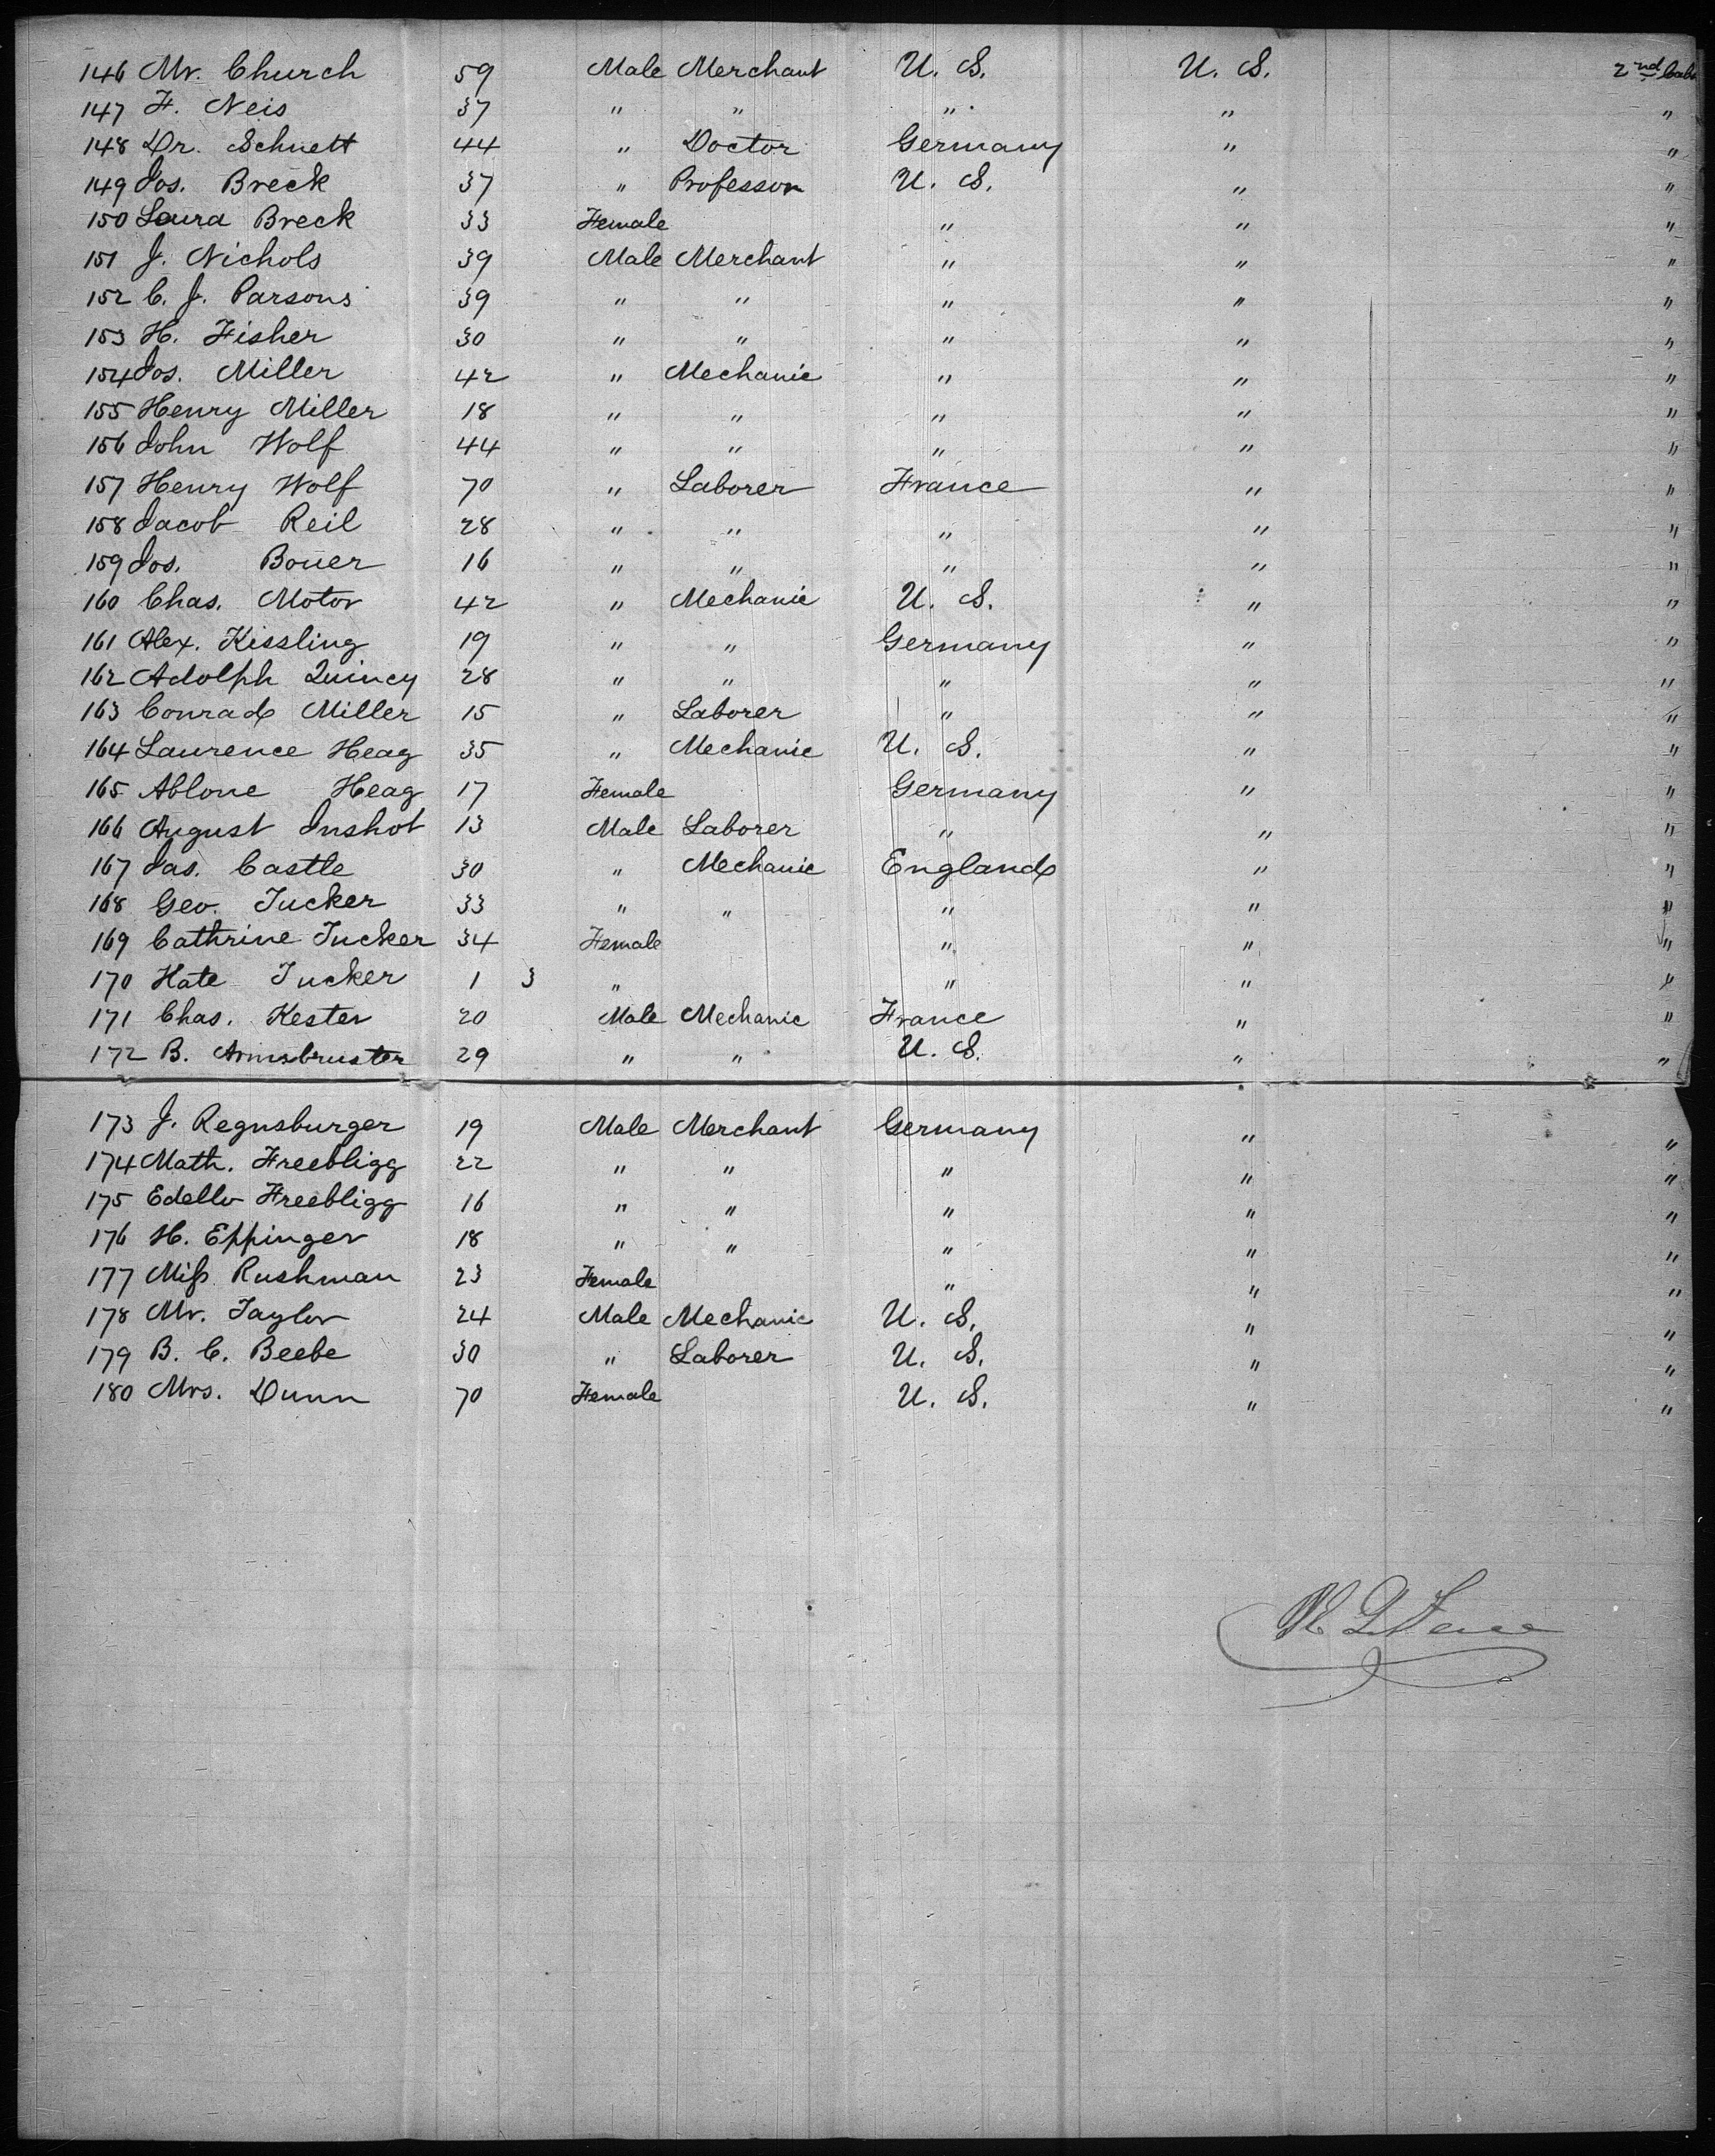 146 Mr. Church 59 Male Merchant U. S. U. S. 2nd Cabn
147 F. Neis 37 " " " " "
148 Dr. Schnett 44 " Doctor Germany " "
149 Jos. Breck 37 " Professor U. S. " "
150 Laura Breck 33 Female " " "
151 J. Nichols 39 Male Merchant " " "
152 C. J. Parsons 39 " " " " "
153 H. Fisher 30 " " " " "
154 Jos. Miller 42 " Mechanic " " "
155 Henry Miller 18 " " " " "
156 John Wolf 44 " " " " "
157 Henry Wolf 70 " Laborer France " "
158 Jacob Reil 28 " " " " "
159 Jos. Bouer 16 " " " " "
160 Chas. Motor 42 " Mechanic U. S. " "
161 Alex. Kissling 19 " " Germany " "
162 Adolph Quincy 28 " " " " "
163 Conrad Miller 15 " Laborer " " "
164 Laurence Heag 35 " Mechanic U. S. " "
165 Ablone Heag 17 Female Germany " "
166 August Inshot 13 Male Laborer " " "
167 Jas. Castle 30 " Mechanic England " "
168 Geo. Tucker 33 " " " " "
169 Cathrine Tucker 34 Female " " "
170 Kate Tucker 1 3 " " " "
171 Chas. Kester 20 Male Mechanic France " "
172 B. Armsbruster 29 " " U. S. " "
173 J. Regnsburger 19 Male Merchant Germany " "
174 Math. Freebligg 22 " " " " "
175 Edello Freebligg 16 " " " " "
176 H. Eppinger 18 " " " " "
177 Miss Rushman 23 Female " " "
178 Mr. Taylor 24 Male Mechanic U. S. " "
179 B. C. Beebe 30 " Laborer U. S. " "
180 Mrs. Dunn 70 Female U. S. " "